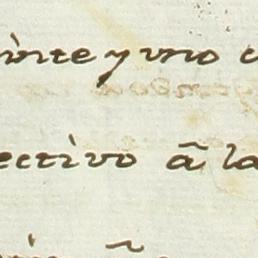 inte y uno
ectivo â la